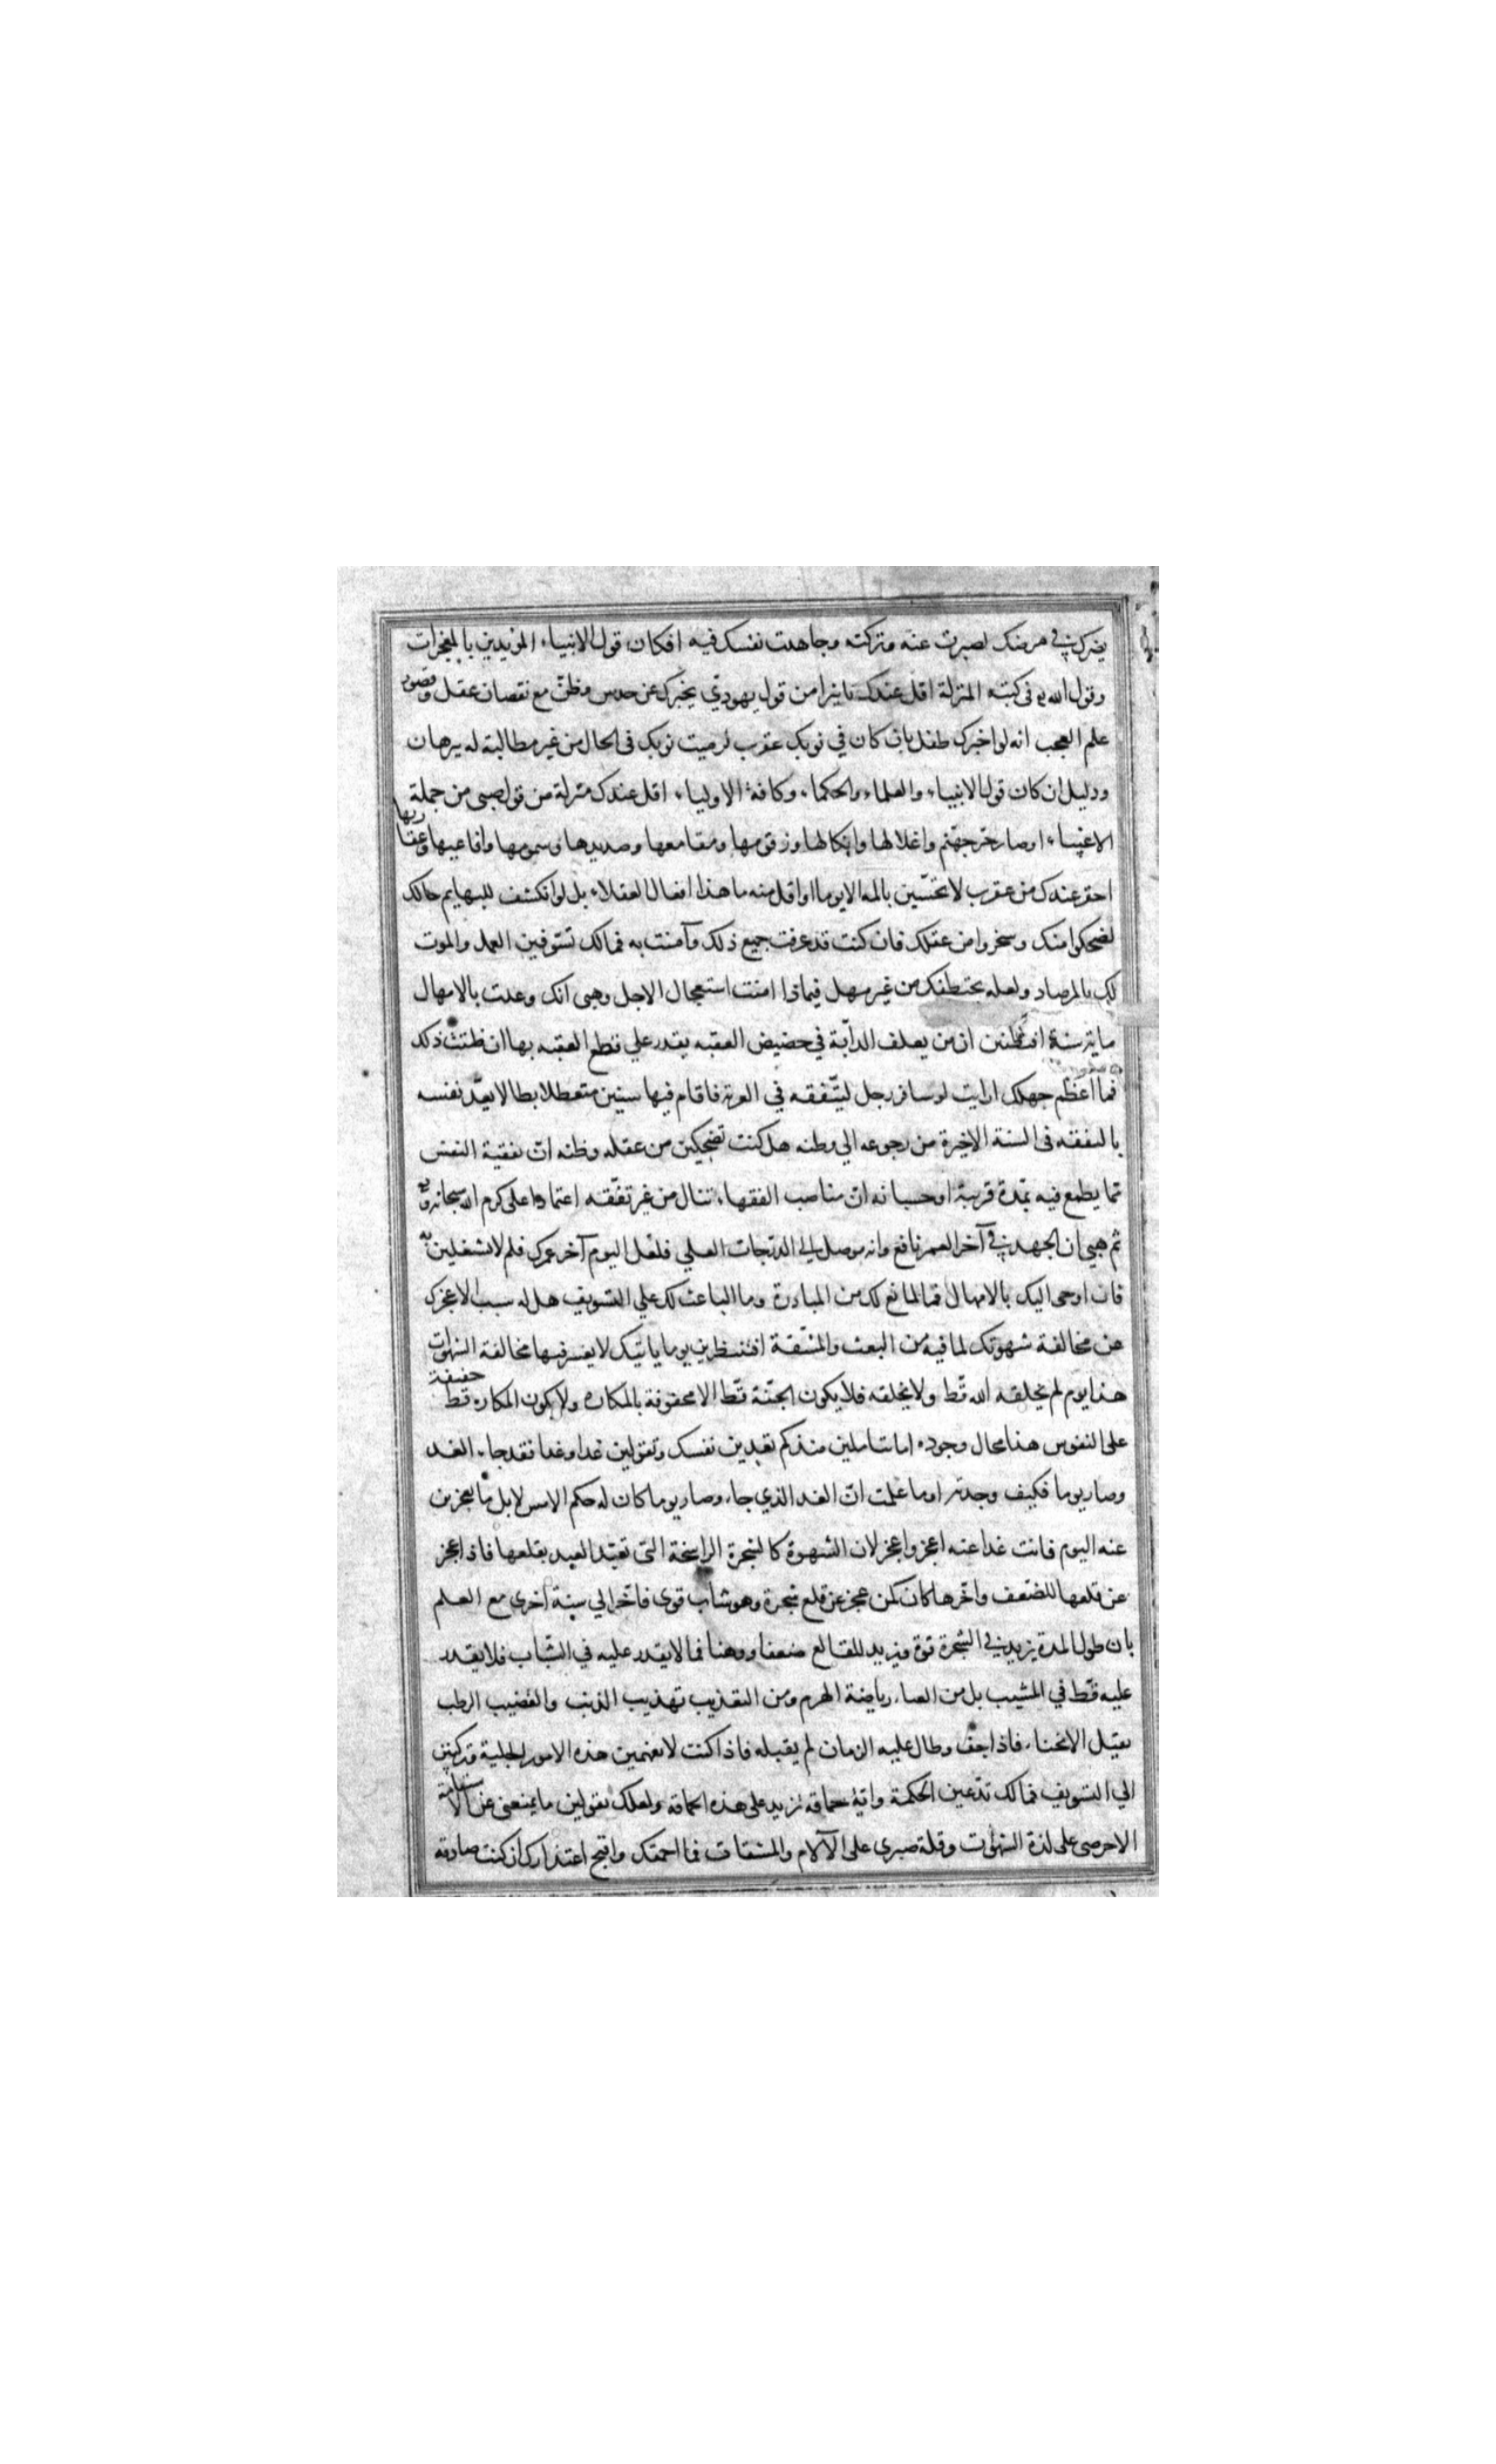 يضرك في مرضك لصبرت عنه وتركته وجاهدت نفسك فيه افكان قول الانبياء المؤيدين بالمعجزات
وقول الله تع في كتبه المنزلة اقل عندك تاثيرا من قول يهودي يخبرك عن حدس وظن مع نقصان عقل وقصور
علم العجب انه لو اخبرك طفل بان كان في ثوبك عقرب لرميت ثوبك في الحال من غير مطالبة له ببرهان
ودليل ان كان قول الانبياء والعلماء والحكماء وكافة الاولياء اقل عندك منزلة من قول صبي من جملة
الاغبياء او صار حر جهنم واغلالها وانكالها وزقومها ومقامعها وصديدها وسمومها وافاعيها وعقاربها
احقر عندك من عقرب لا تحسين بالمه الا يوما او اقل منه ما هذا افعال العقلاء بل لو انكشف للبهايم حالك
لضحكوا منك وسخروا من عقلك فان كنت قد عرفت جميع ذلك وآمنت به فمالك تسوفين العمل والموت
لك بالمرصاد ولعله يختطفك من غير مهل فبماذا امنت استعجال الاجل وهبي انك وعدت بالامهال
ماية سنة افتظنين ان من يعلف الدابة في حضيض العقبه يقدر علي قطع العقبه بها ان ظننت ذلك
فما اعظم جهلك ارايت لو سافر رجل ليتفقه في الغربة فاقام فيها سنين متعطلا بطالا يعد نفسه
بالتفقه في السنة الاخيرة من رجوعه الي وطنه هل كنت تضحكين من عقله وظنه ان تفقيه النفس
مما يطمع فيه بمدة قريبة او حسبانه ان مناصب الفقهاء تنال من غير تفقه اعتمادا على كرم الله سبحانه
ثم هبي ان الجهد في آخر العمر نافع وانه موصل الي الدرجات العلي فلعل اليوم آخر عمرك فلم لا تشتغلين به
فان اوحى اليك بالامهال فما المانع لك من المبادرة وما الباعث لك علي التسويف هل له سبب الا عجزك
عن مخالفة شهوتك لما فيه من التعب والمشقة افتنتظرين يوما ياتيك لا يعسر فيها مخالفة الشهوات
هذا يوم لم يخلقه الله قط ولا يخلقه فلا يكون الجنة قط الا محفوفة بالمكاره ولا يكون المكاره قط خفيفة
على النفوس هذا محال وجوده اما تتاملين منذ كم تعدين نفسك وتقولين غدا وغدا فقد جاء الغد
وصار يوما فكيف وجدته اوما علمت ان الغد الذي جاء وصار يوما كان له حكم الامس لا بل ما تعجزين
عنه اليوم فانت غدا عنه اعجز واعجز لان الشهوة كالشجرة الراسخة التي تعبد العبد بقلعها فاذا عجز
عن قلعها للضعف واخرها كان كمن عجز عن قلع شجرة وهو شاب قوي فاخرها الي سنة اخري مع العلم
بان طول المدة يزيد في الشجرة قوة ويزيد للقالع ضعفا ووهنا فما لا يقدر عليه في الشباب فلا يقدر
عليه قط في المشيب بل من العناء رياضة الهرم ومن التعذيب تهذيب الذيب والقضيب الرطب
يقبل الانحناء فاذا جف وطال عليه الزمان لم يقبله فاذا كنت لا تفهمين هذه الامور الجلية وتركنين
الي التسويف فمالك تدعين الحكمة واية حماقه تزيد على هذه الحماقه ولعلك تقولين ما يمنعني عن الاستقامة
الا حرصي على لذة الشهوات وقلة صبري على الآلام والمشقات فما احمقك واقبح اعتذارك ان كنت صادقه